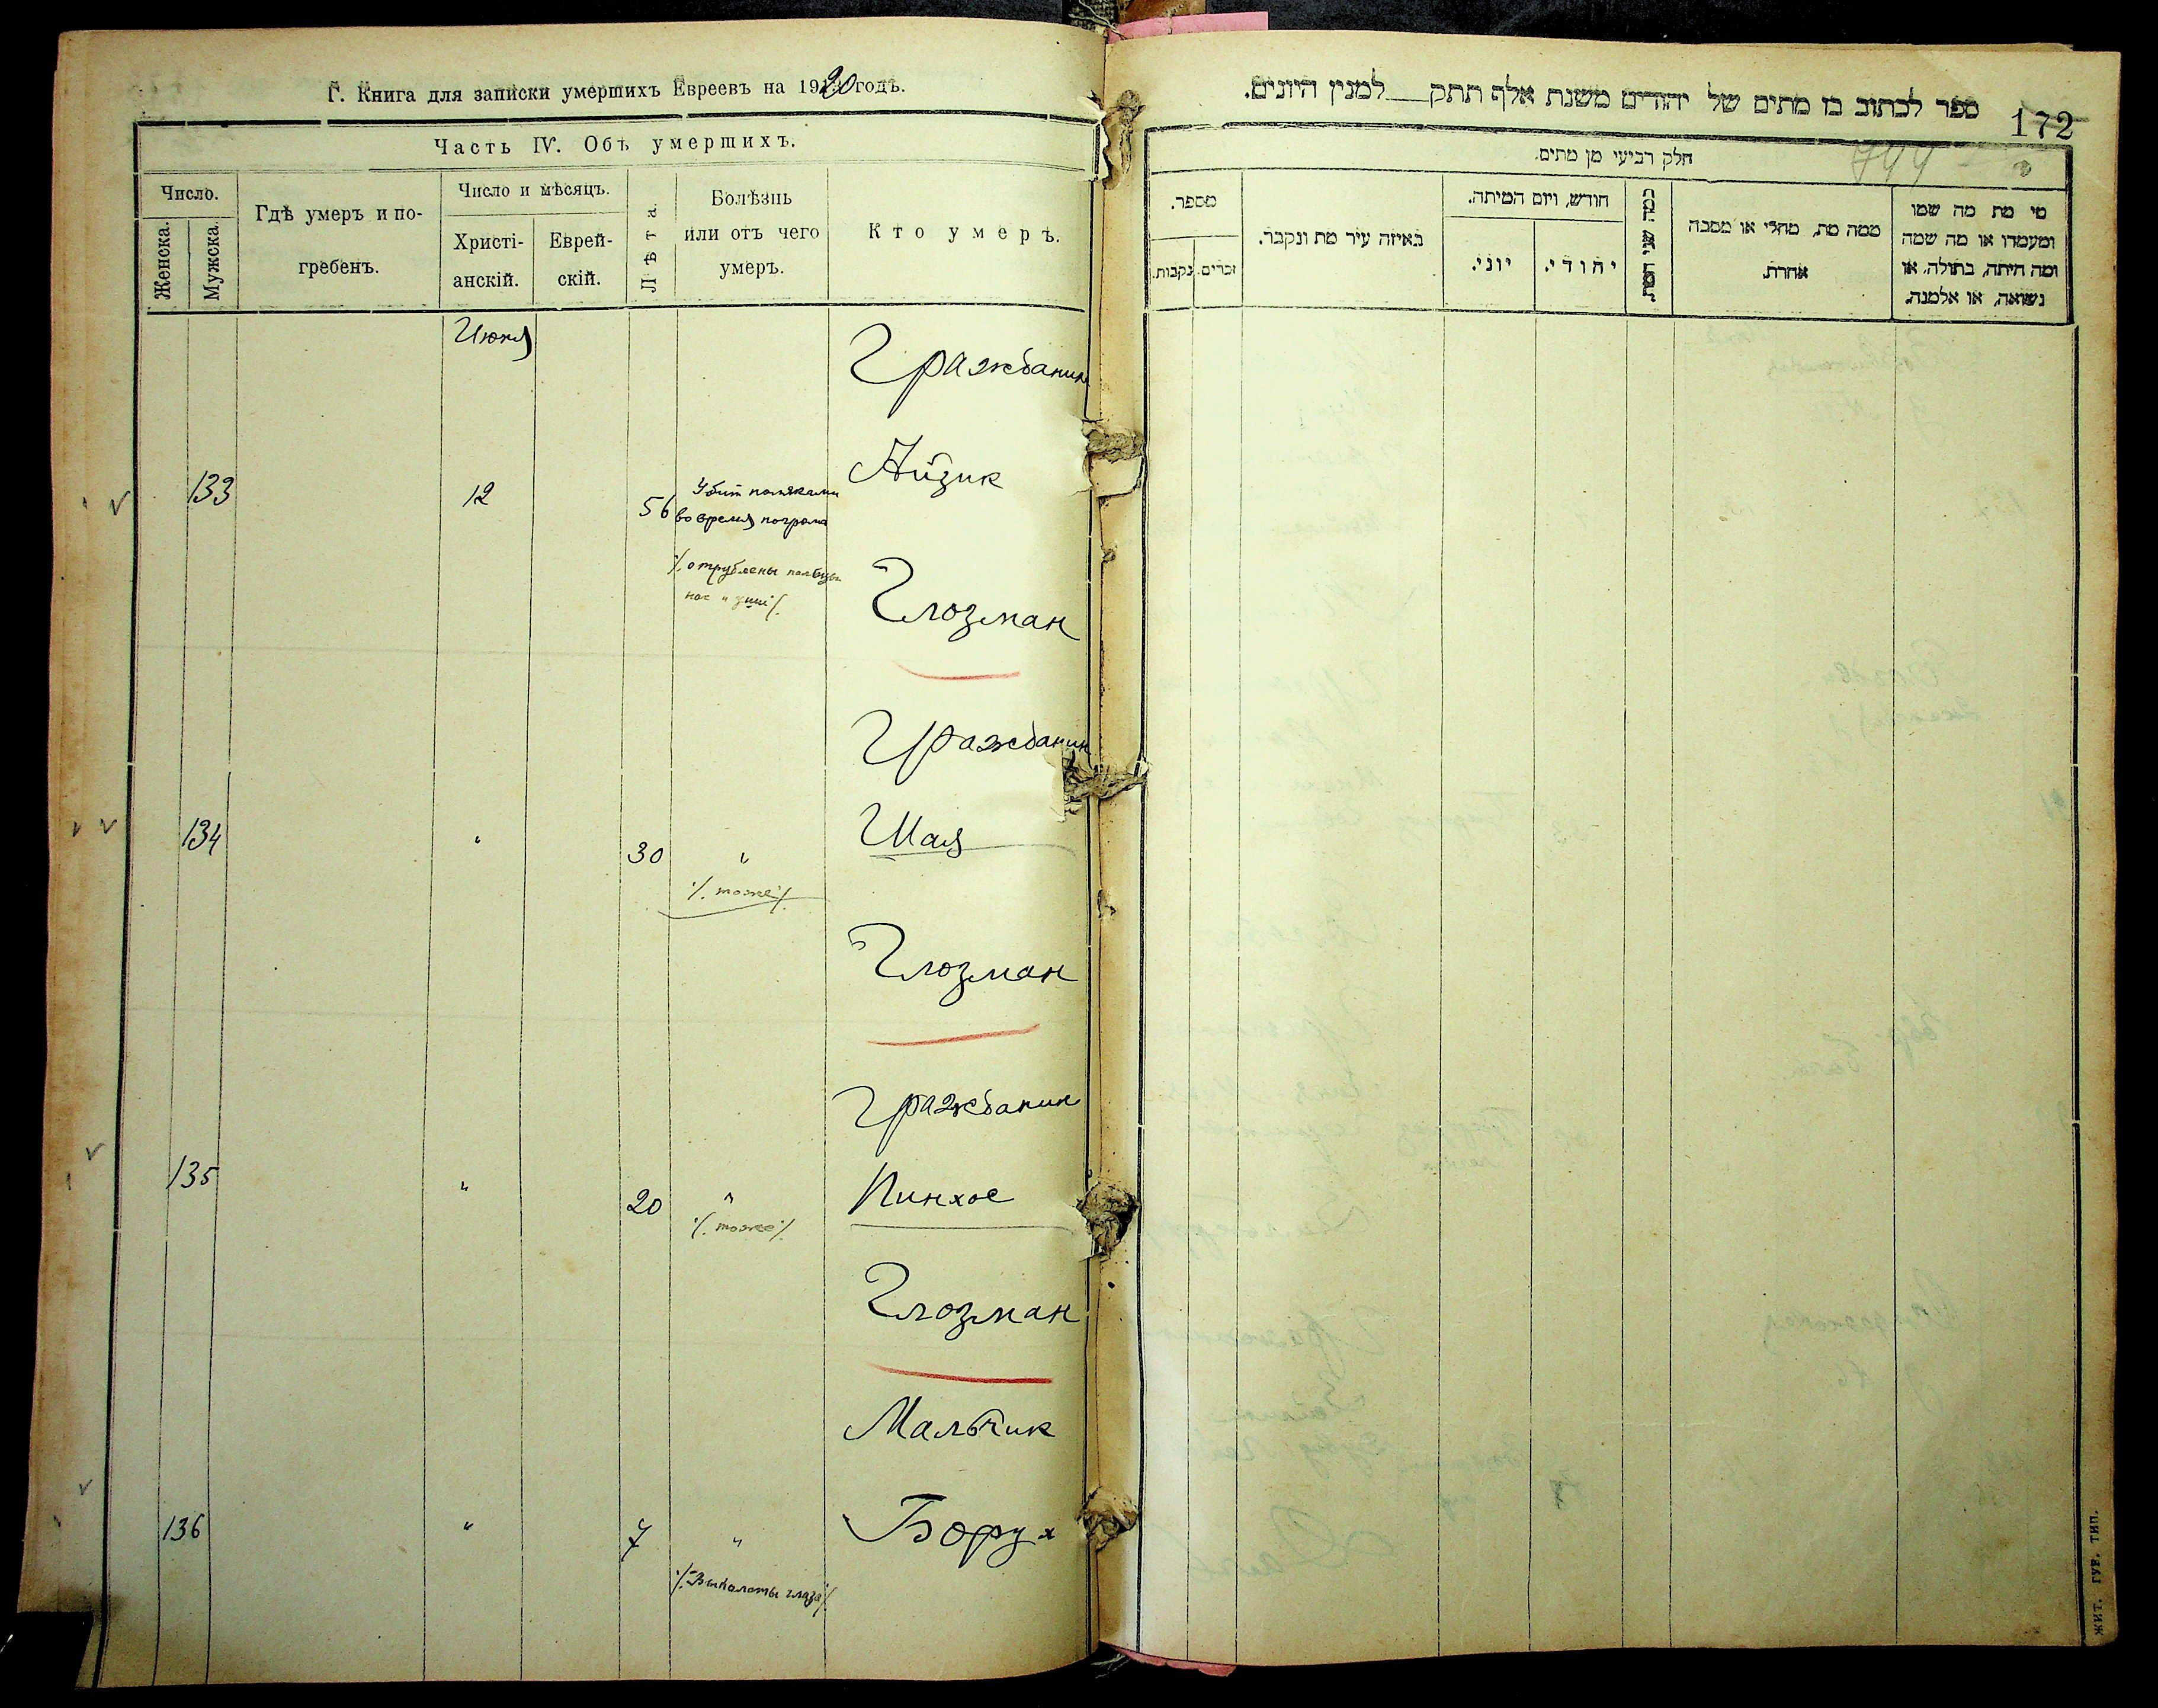 Г. Книга для записки умершихъ Евреевъ на 1920 годъ.
Часть IV. Объ умершихъ.
Число.
Женска.
Мужска.
Гдѣ умеръ и по-
гребенъ.
Число и мѣсяцъ.
Христі-
анскій.
Еврей-
скій.
Лѣта.
Болѣзнь
или отъ чего
умеръ.
Кто умеръ.
Июня
Гражданин
133
12
56
Убит поляками
во время погрома
/. отрублены пальцы
нос и уши /.
Айзик
Глозман
Гражданин
134
"
30
"
/. тоже /.
Шая
Глозман
Гражданин
135
"
20
"
/. тоже /.
Пинхос
Глозман
Мальчик
136
"
7
"
/. Выколоты глаза /.
Борух
ספר לכתוב בו מתים של יהודים משנת אלף תתק למנין היונים.
172
799
חלק רביעי מן מתים.
מספר.
נקבות.
זכרים.
באיזה עיר מת ונקבר.
חודש, ויום המיתה.
יוני.
יהודי.
כמה שני המת
ממה מת, מחלי או מסבה
אחרת.
מי מת מה שמו
ומעמדו או מה שמה
ומה היתה, בתולה, או
נשואה, או אלמנה.
ЖИТ. ГУБ. ТИП.